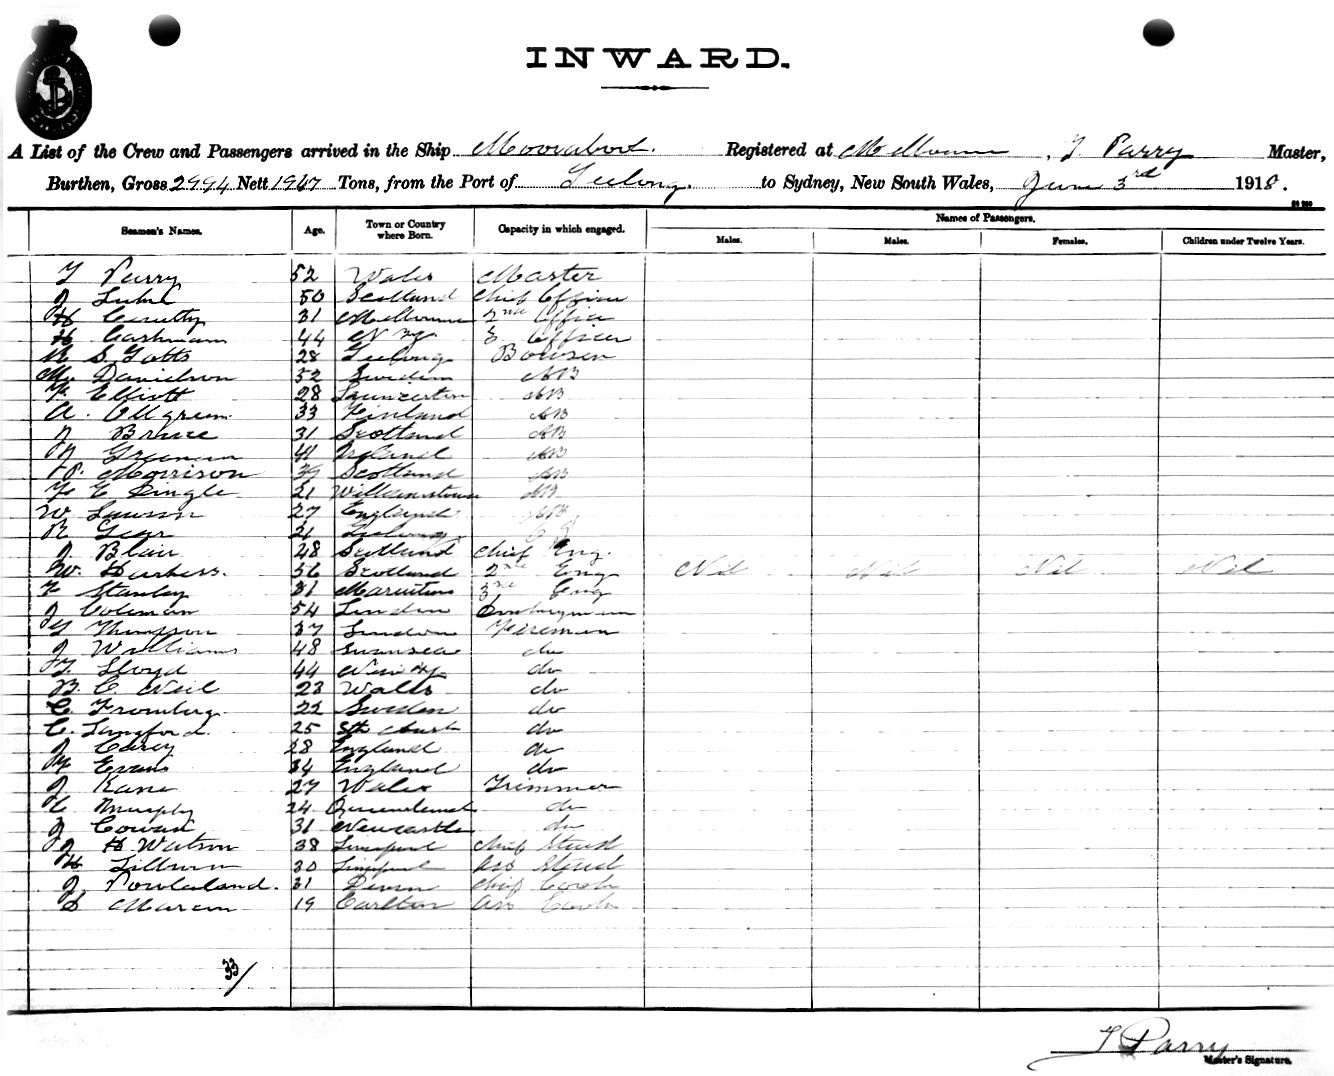 INWARD.
A List of the Crew and Passengers arrived in the Ship Moorabool. Registered at Melbourne, T. Parry Master,
Burthen, Gross 2994 Nett 1967 Tons, from the Port of Geelong. to Sydney, New South Wales, June 3rd 1918.
Seamen's Names. Age. Town or Country where Born. Capacity in which engaged. Names of Passengers.
Males. Males. Females. Children under Twelve Years.
T Parry 52 Wales Master
J 50 Scotland Chief Officer
H 31 Melbourne 2nd Office
H Cashmam 44 N Z 3 Officer
S. 28 Geelong Bowsen
Davidson 52 Sweden AB
F Elliott 28 Launceston AB
A. Ollgreen. 33 Finland AB
J Bruce 31 Scotland AB
41 Ireland AB
P. Morrison 39 Scotland AB
F E Pingle 21 Williamstown AB
W Lawson 27 England AB
R Gear Geelong
J Blair 48 Scotland Chief Eng.
W. 56 Scotland 2nd Eng Nil Nil Nil Nil
F Stanley 31 Mauritius 3rd Eng
J Coleman 54 London Donkeyman
Thompson 37 London Fireman
J Williams 48 Swansea do
T. Lloyd 44 do
B. C. Neil 23 Wales do
C. Fromberg. 22 Sweden do
C. Langford. 25 Sth Aust do
J Carey 28 England do
Evans 34 England do
J Kane 27 Wales Trimmer
C Murphy 24 Queensland do
J Coward 31 Newcastle do
J H Watson 38 Liverpool Chief Steud
H Lilburn 30 Liverpool Ass Steud
J. Powlesland. 31 Devon Chief Cook
S Marcon 19 Carlton Ass Cook
33/
T Parry
Master's Signature.